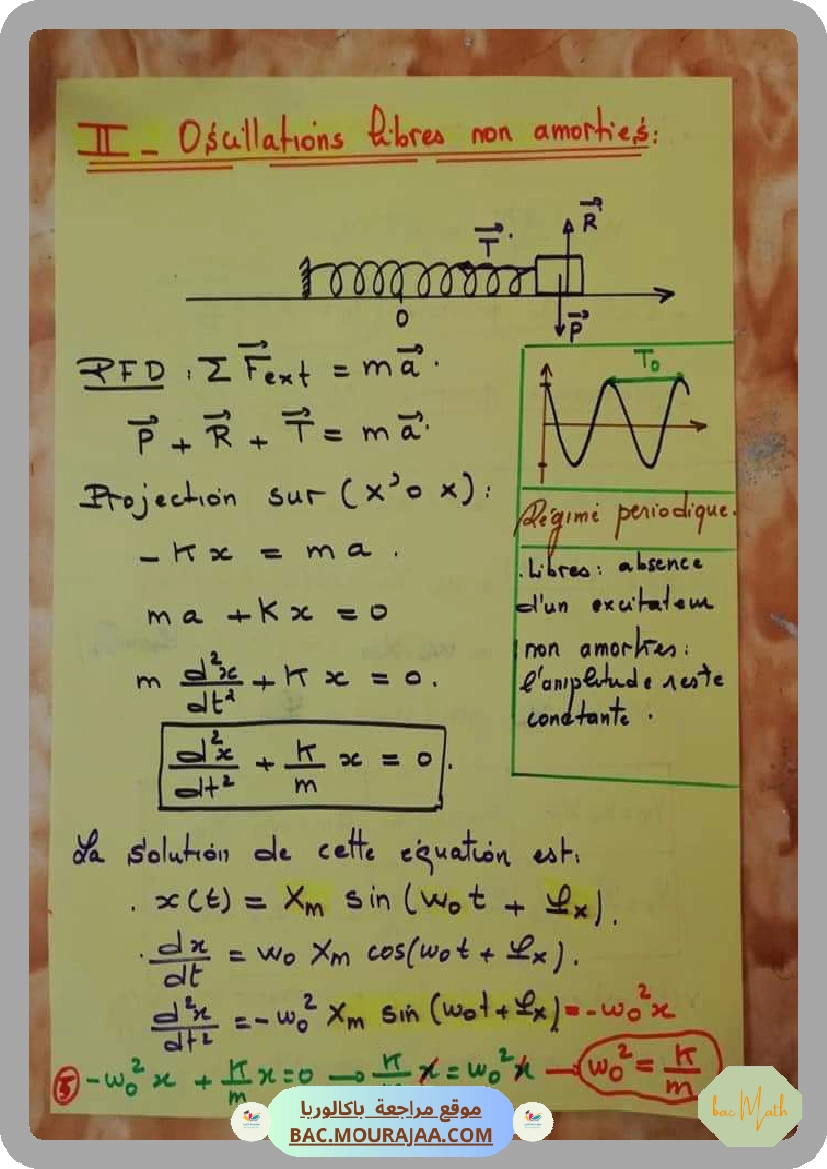 II - Oscillations libres non amorties:
T
R
O
P
PFD : Σ F ext = m a.
P + R + T = m a.
Projection sur (x'ox):
- K x = m a.
m a + K x = 0
m d²x/dt² + K x = 0.
d²x/dt² + K/m x = 0.
T₀
Régime periodique.
. Libres: absence
d'un excitateur
non amorties:
l'amplitude reste
constante.
La solution de cette équation est:
. x(t) = Xm sin (w₀t + φx).
. dx/dt = w₀ Xm cos(w₀t + φx).
d²x/dt² = - w₀² Xm sin (w₀t + φx) = - w₀² x
5 - w₀² x + K/m x = 0 → K/m x = w₀² x → w₀² = K/m
موقع مراجعة باكالوريا
BAC.MOURAJAA.COM
bac Math